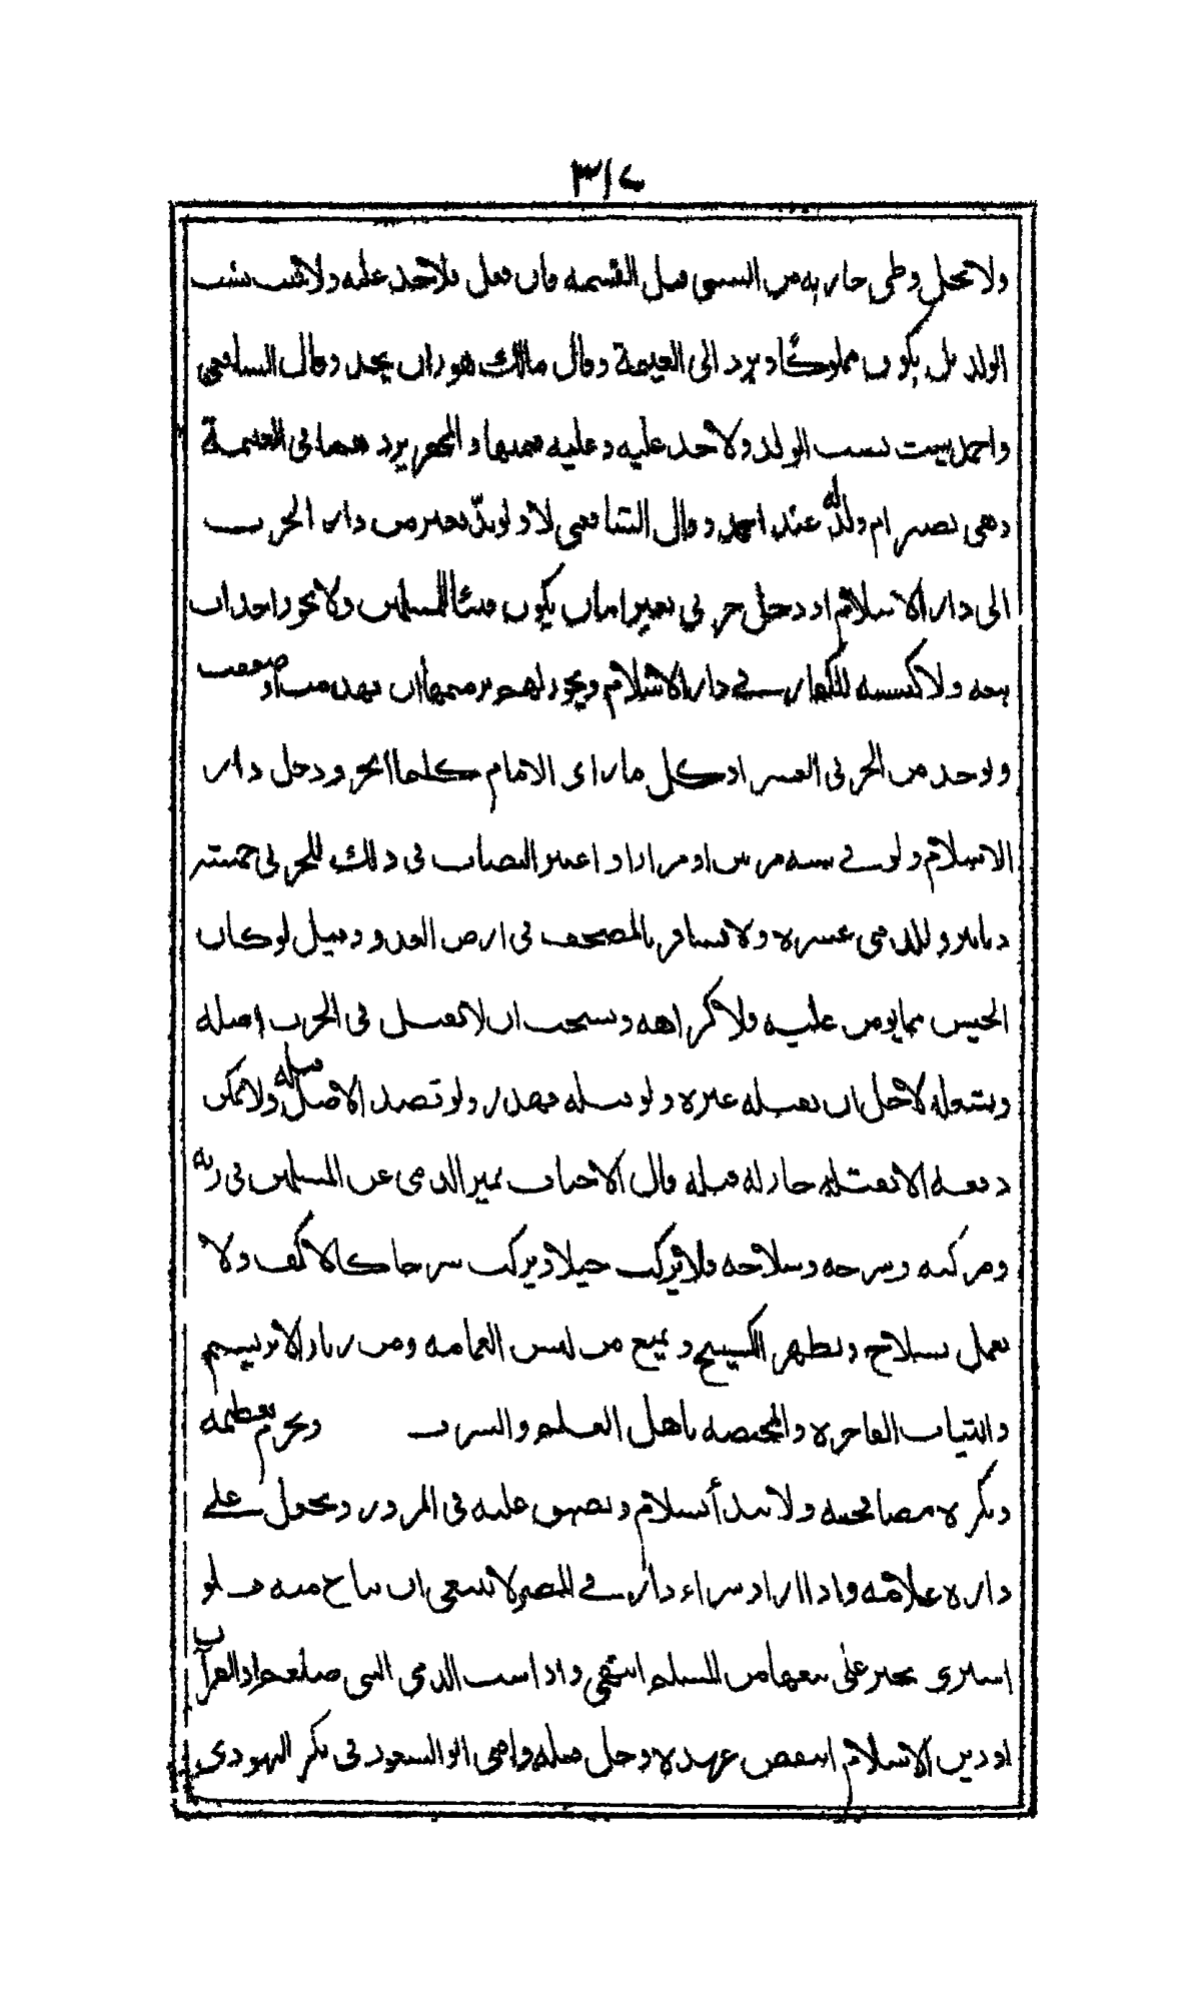 ٣١٤
ولا تحل وطى جاريه من السبى قبل القسمه فان فعل فلا حد عليه ولا يثبت نسب
الولد بل يكون مملوكا ويرد الى الغنيمة وقال مالك هو زان يحد وقال الشافعى
واحمد يثبت نسب الولد ولا حد عليه وعليه قيمتها والمهر يرد هما فى الغنيمة
وهى تصير ام ولد له عند احمد وقال الشافعى لا ولو بذ بعير من دار الحرب
الى دار الاسلام او دخل حربى بغير امان يكون فيئا للمسلمين ولا يجوز احداث
بيعه ولا كنيسه للكفار فى دار الاسلام ويجوز لهم ترميمها ان تهدمت او ضعفت
ويوخذ من الحربى العشر او كل ما راى الامام كلما اتجر ودخل دار
الاسلام ولو فى سنه مرتين او مرارا واعتبر النصاب فى ذلك للحربى خمسه
دنانير وللذمى عشره ولا يسافر بالمصحف فى ارض العدو وقيل لو كان
الجيش مما يومن عليه فلا كراهه ويستحب ان لا يقتل فى الحرب اصله
ويشغله لاجل ان يقتله غيره ولو قتله فهدر ولو قصد الاصل قتله ولا يمكن
دفعه الا بقتله جاز له قتله قال الاحناف يميز الذمى عن المسلمين فى زيه
ومركبه وسرجه وسلاحه فلا يركب خيلا ويركب سرجا كالاكف ولا
يعمل بسلاح ويظهر الكستيج ويمنع من لبس العمامه ومن زنار الابريسم
والثياب الفاخره والمختصه باهل العلم والشرف ويحرم تعظيمه
وتكره مصافحته ولا يبدأ بسلام ويضيق عليه فى المرور ويجعل على
داره علامه واذا اراد شراء دار فى المصر لا ينبغى ان تباع منه فلو
اشترى يجبر على بيعها من المسلم انتهى واذا سب الذمى النبى صلعم او القرآن
او دين الاسلام انتقض عهده وحل قتله وافتى ابو السعود فى بكر اليهودى